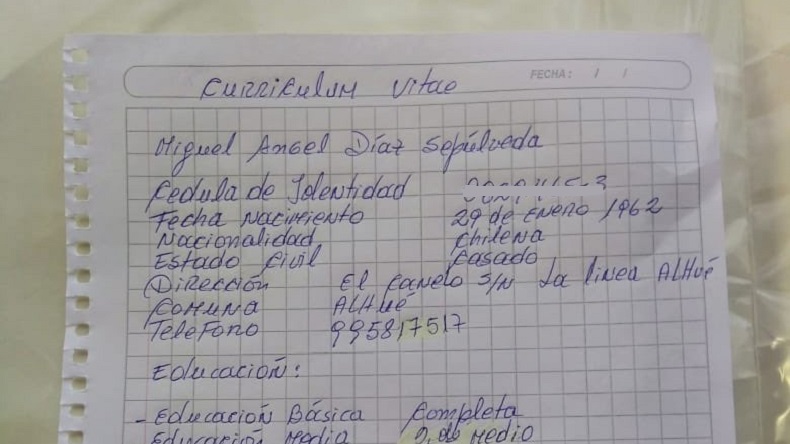 FECHA: / /
Curriculum Vitae
Miguel Angel Díaz Sepúlveda
Cedula de Identidad
Fecha Nacimiento 29 de Enero 1962
Nacionalidad Chilena
Estado Civil Casado
Dirección El Canelo S/N La Linea ALHué
Comuna ALHué
Telefono 995817517
Educación:
- Educación Básica Completa
Educación Media 2. do Medio